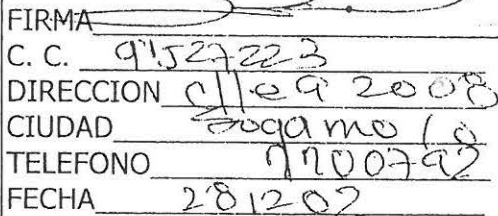 FIRMA
C. C. 9'527223
DIRECCION 2008
CIUDAD Sogamoso
TELEFONO 7700792
FECHA 281202